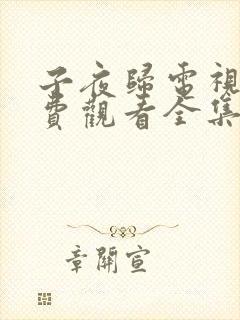 子夜歸電視
費觀看全集
章開宣